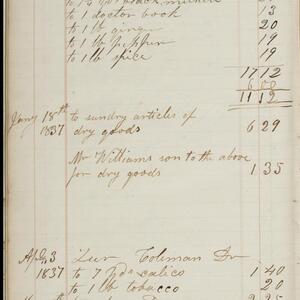 to 1 doctor book 13
to 1 lb ginger 20
to 1 lb pepper 19
to 1 lb spice 19
17 12
6 00
11 12
Jany 18th to sundry articles of
1837 dry goods 6 29
Mr Williams son to the above
for dry goods 1 35
Apl 3 Coliman Dr
1837 to 7 yds calico 1 40
to 1 lb tobacco 20